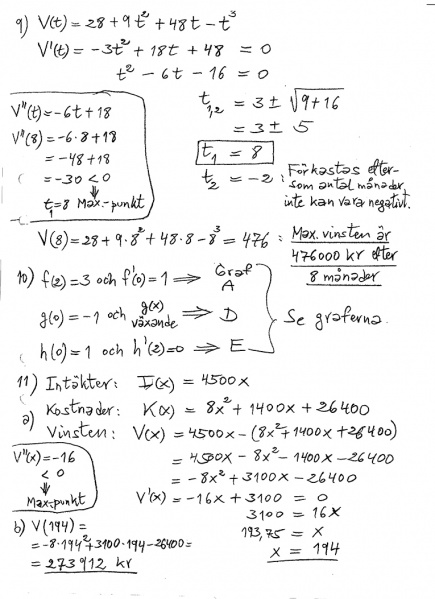 9) V(t) = 28 + 9t² + 48t − t³
V'(t) = −3t² + 18t + 48 = 0
t² − 6t − 16 = 0
V''(t) = −6t + 18
V''(8) = −6·8 + 18
= −48 + 18
= −30 < 0
⇓
t₁ = 8 Max.-punkt
t₁,₂ = 3 ± √9+16
= 3 ± 5
t₁ = 8
t₂ = −2 : Förkastas efter-
som antal månader
inte kan vara negativt.
V(8) = 28 + 9·8² + 48·8 − 8³ = 476 : Max. vinsten är
476000 kr efter
8 månader
10) f(2) = 3 och f'(0) = 1 ⟹ Graf A
g(0) = −1 och g(x) växande ⟹ D
h(0) = 1 och h'(2) = 0 ⟹ E
Se graferna.
11) Intäkter: I(x) = 4500x
a) Kostnader: K(x) = 8x² + 1400x + 26400
Vinsten: V(x) = 4500x − (8x² + 1400x + 26400)
= 4500x − 8x² − 1400x − 26400
= −8x² + 3100x − 26400
V''(x) = −16
< 0
⇓
Max-punkt
V'(x) = −16x + 3100 = 0
3100 = 16x
193,75 = x
x = 194
b) V(194) =
= −8·194² + 3100·194 − 26400 =
= 273912 kr